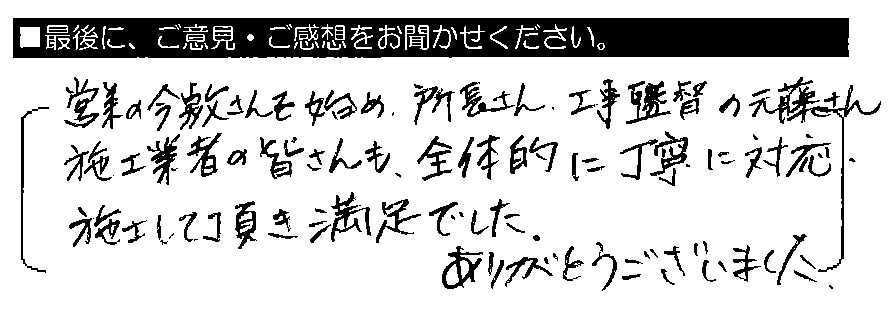 ■最後に、ご意見・ご感想をお聞かせください。
営業の今敷さんを始め、所長さん、工事監督の元藤さん
施工業者の皆さんも、全体的に丁寧に対応、
施工して頂き満足でした。
ありがとうございました。